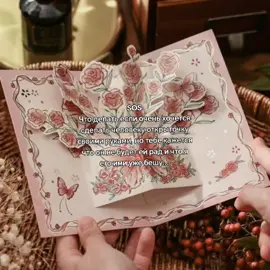 SOS
Что делать если очень хочется
сделать человеку открыточку
своими руками, но тебе кажется
что он не будет ей рад и что я
его ими уже бешу...